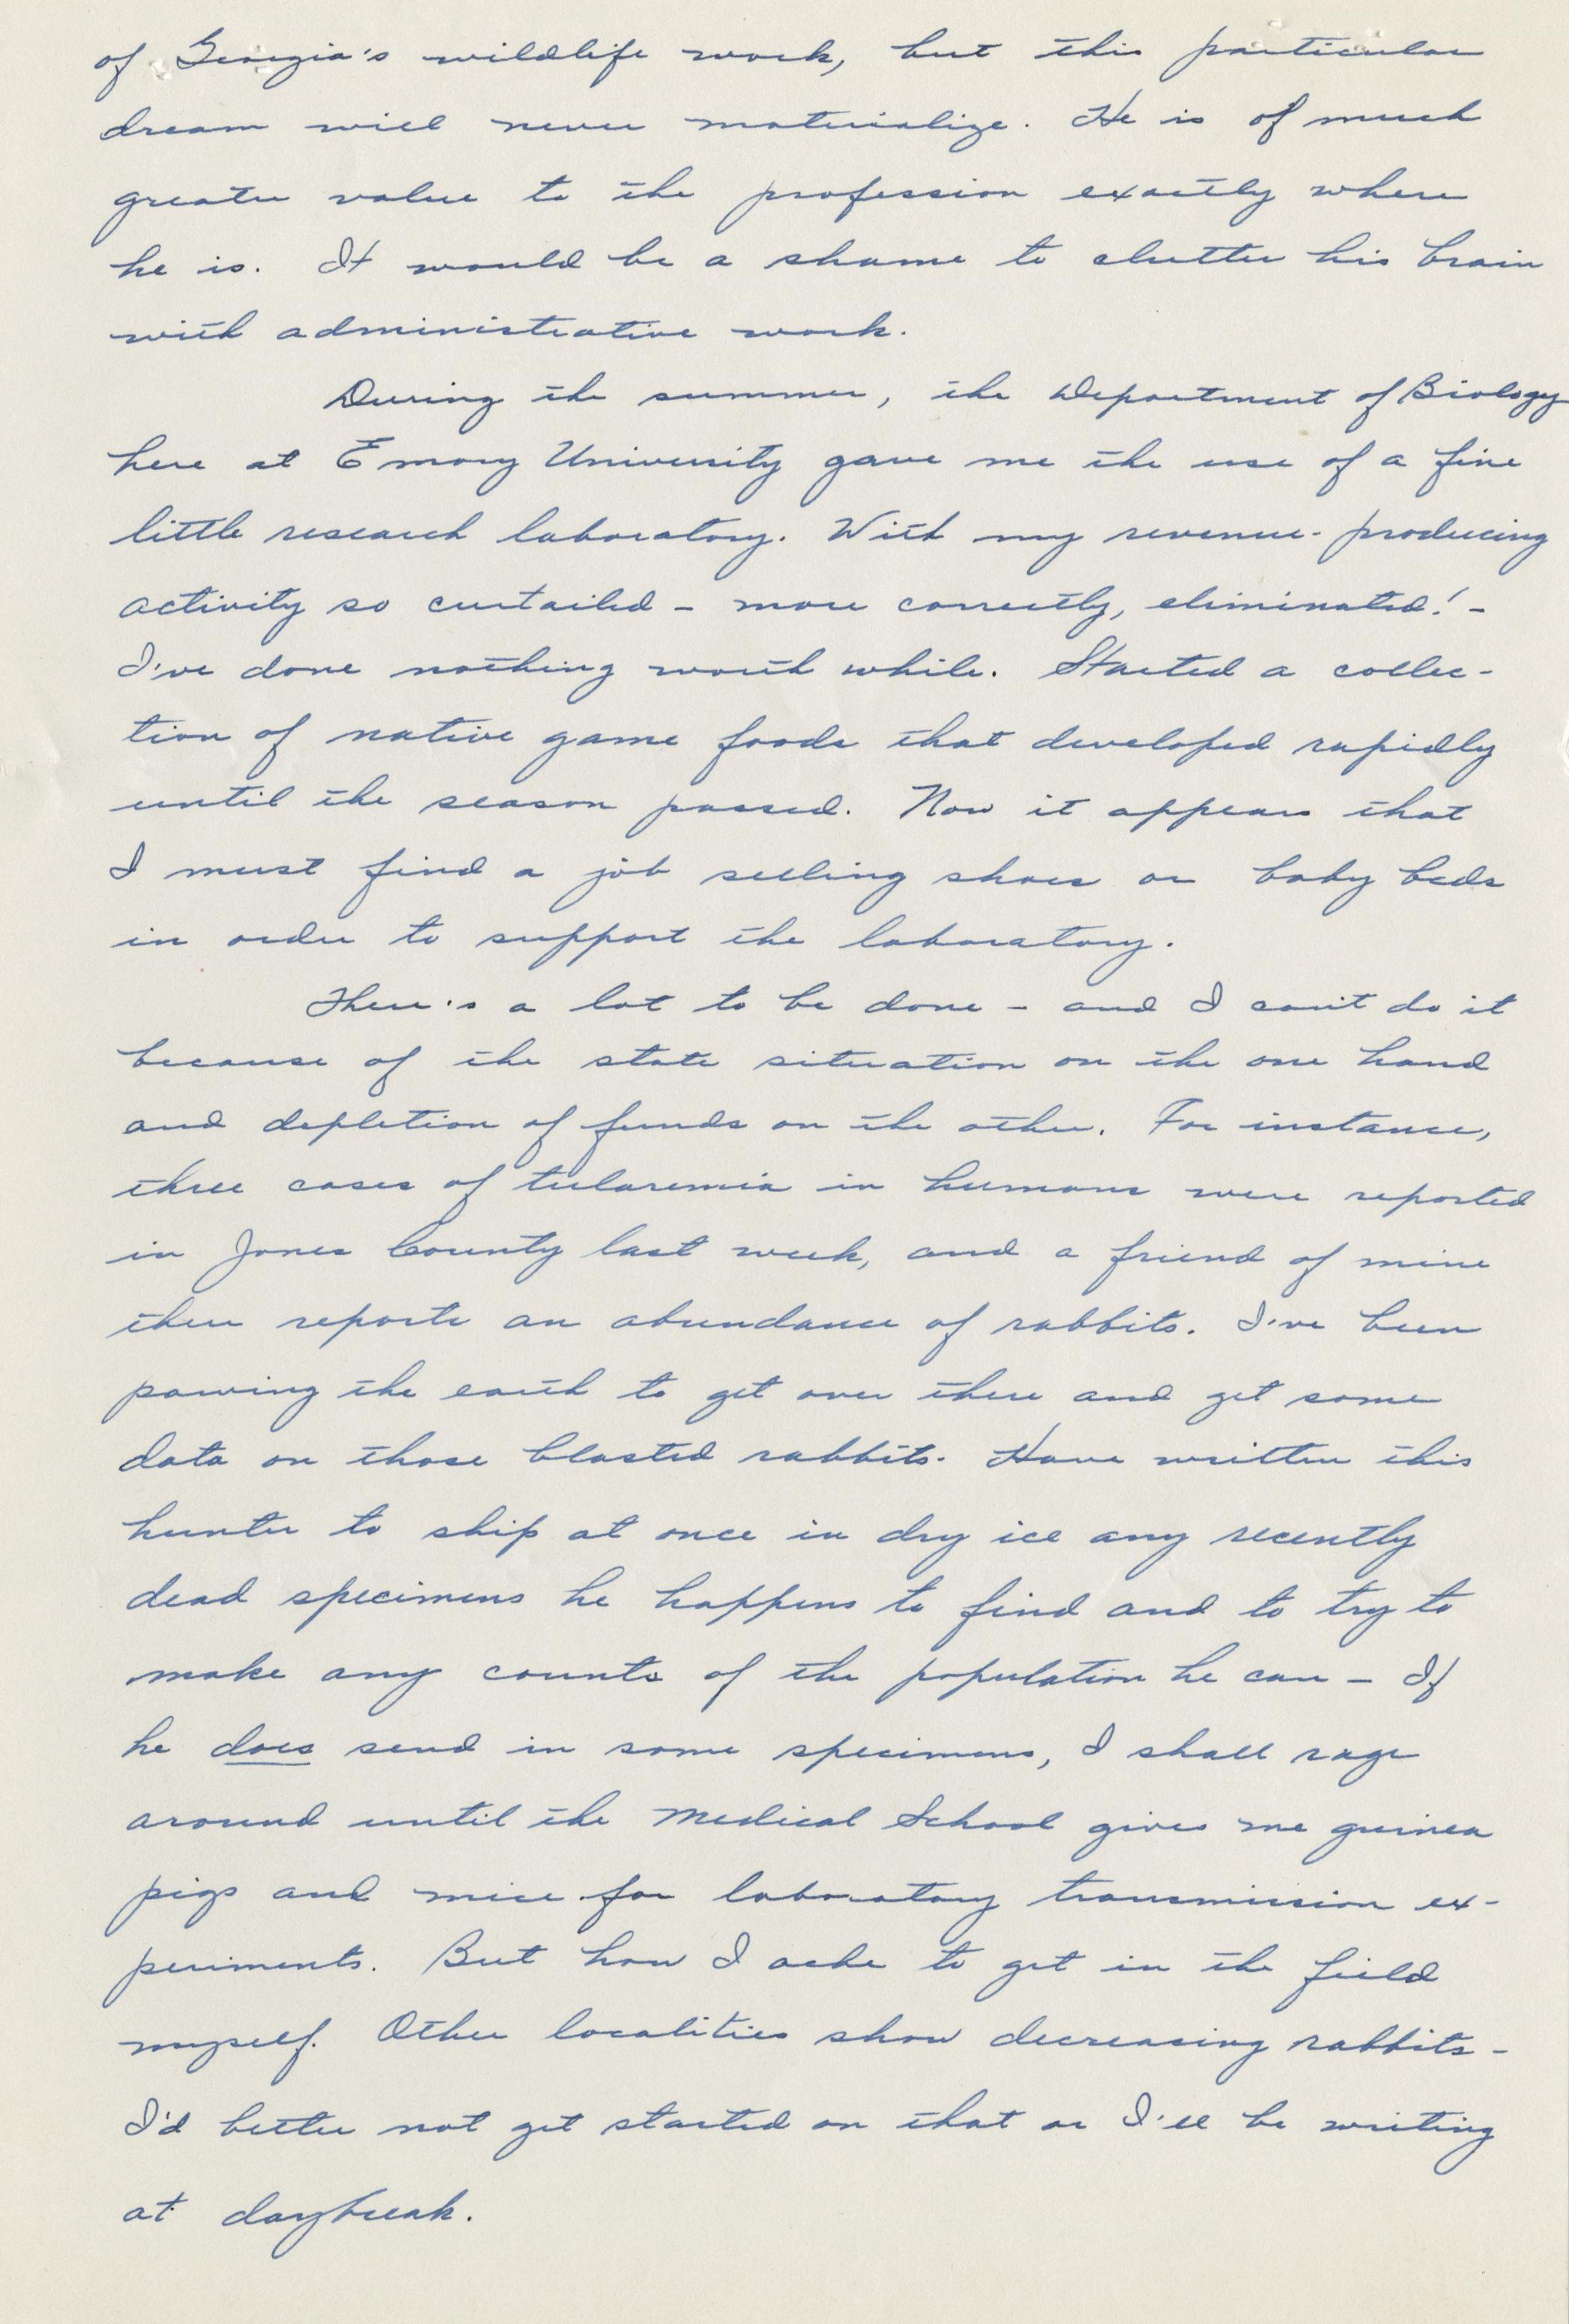 of Georgia's wildlife work, but this particular
dream will never materialize. He is of much
greater value to the profession exactly where
he is. It would be a shame to clutter his brain
with administrative work.
During the summer, the Department of Biology
here at Emory University gave me the use of a fine
little research laboratory. With my revenue-producing
activity so curtailed - more correctly, eliminated! -
I've done nothing worth while. Started a collec-
tion of native game foods that developed rapidly
until the season passed. Now it appears that
I must find a job selling shoes or baby beds
in order to support the laboratory.
There's a lot to be done - and I can't do it
because of the state situation on the one hand
and depletion of funds on the other. For instance,
three cases of tularemia in humans were reported
in Jones County last week, and a friend of mine
there reports an abundance of rabbits. I've been
pawing the earth to get over there and get some
data on those blasted rabbits. Have written this
hunter to ship at once in dry ice any recently
dead specimens he happens to find and to try to
make any counts of the population he can - If
he does send in some specimens, I shall rage
around until the Medical School gives me guinea
pigs and mice for laboratory transmission ex-
periments. But how I ache to get in the field
myself. Other localities show decreasing rabbits -
I'd better not get started on that or I'll be writing
at daybreak.